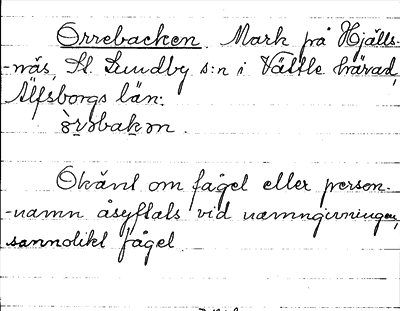 Orrebacken. Mark på Hjälls-
-näs, St. Lundby s:n i Vättle härad,
Älfsborgs län.
Okänt om fågel eller person-
-namn åsyftats vid namngivningen,
sannolikt fågel.